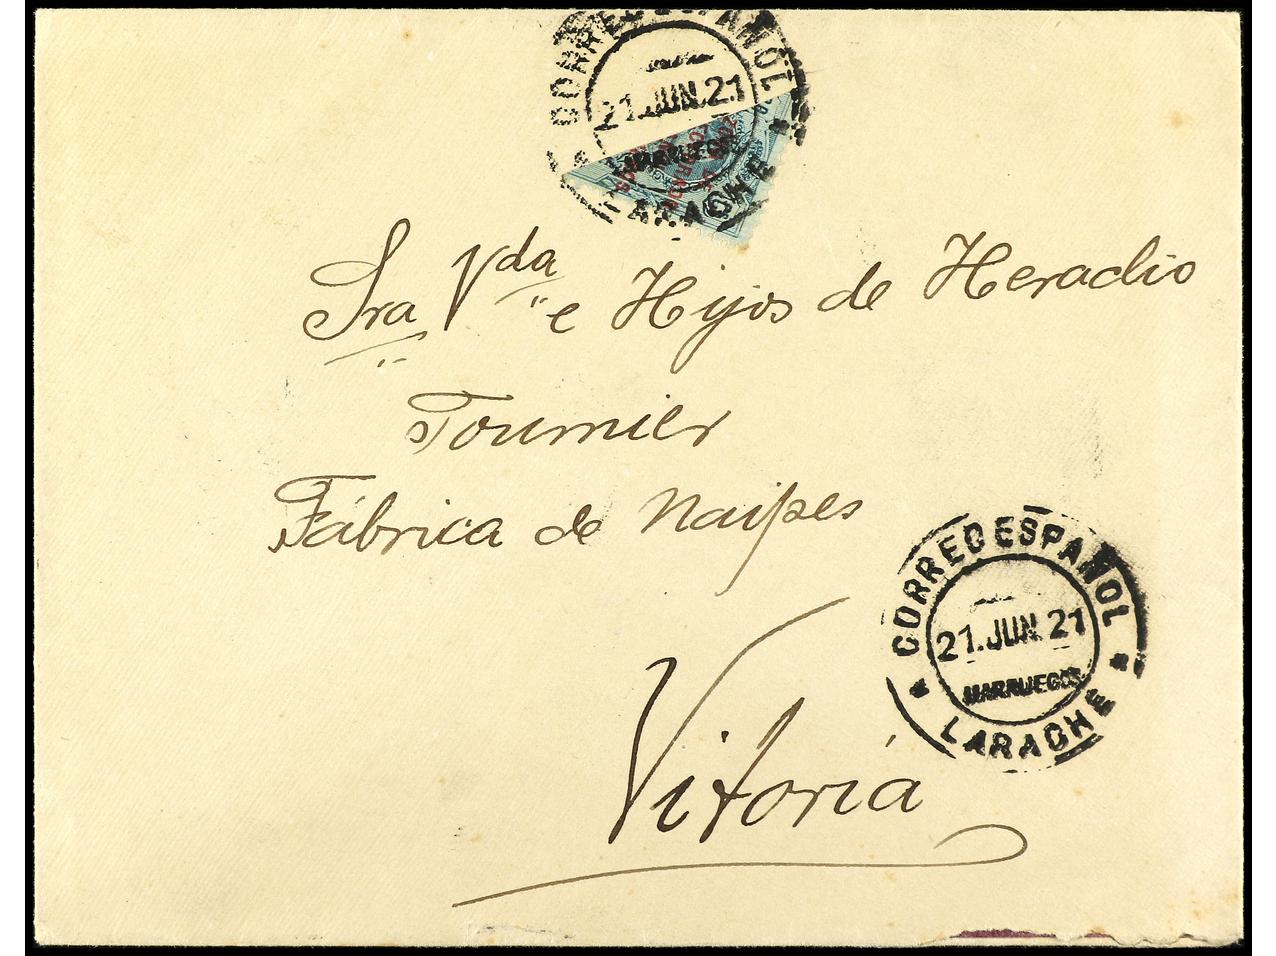 CORREO ESPAÑOL
21.JUN.21
MARRUECOS
LARACHE
Sra Vda e Hijos de Heraclio
Fournier
Fábrica de Naipes
Vitoria
CORREO ESPAÑOL
21.JUN.21
MARRUECOS
LARACHE